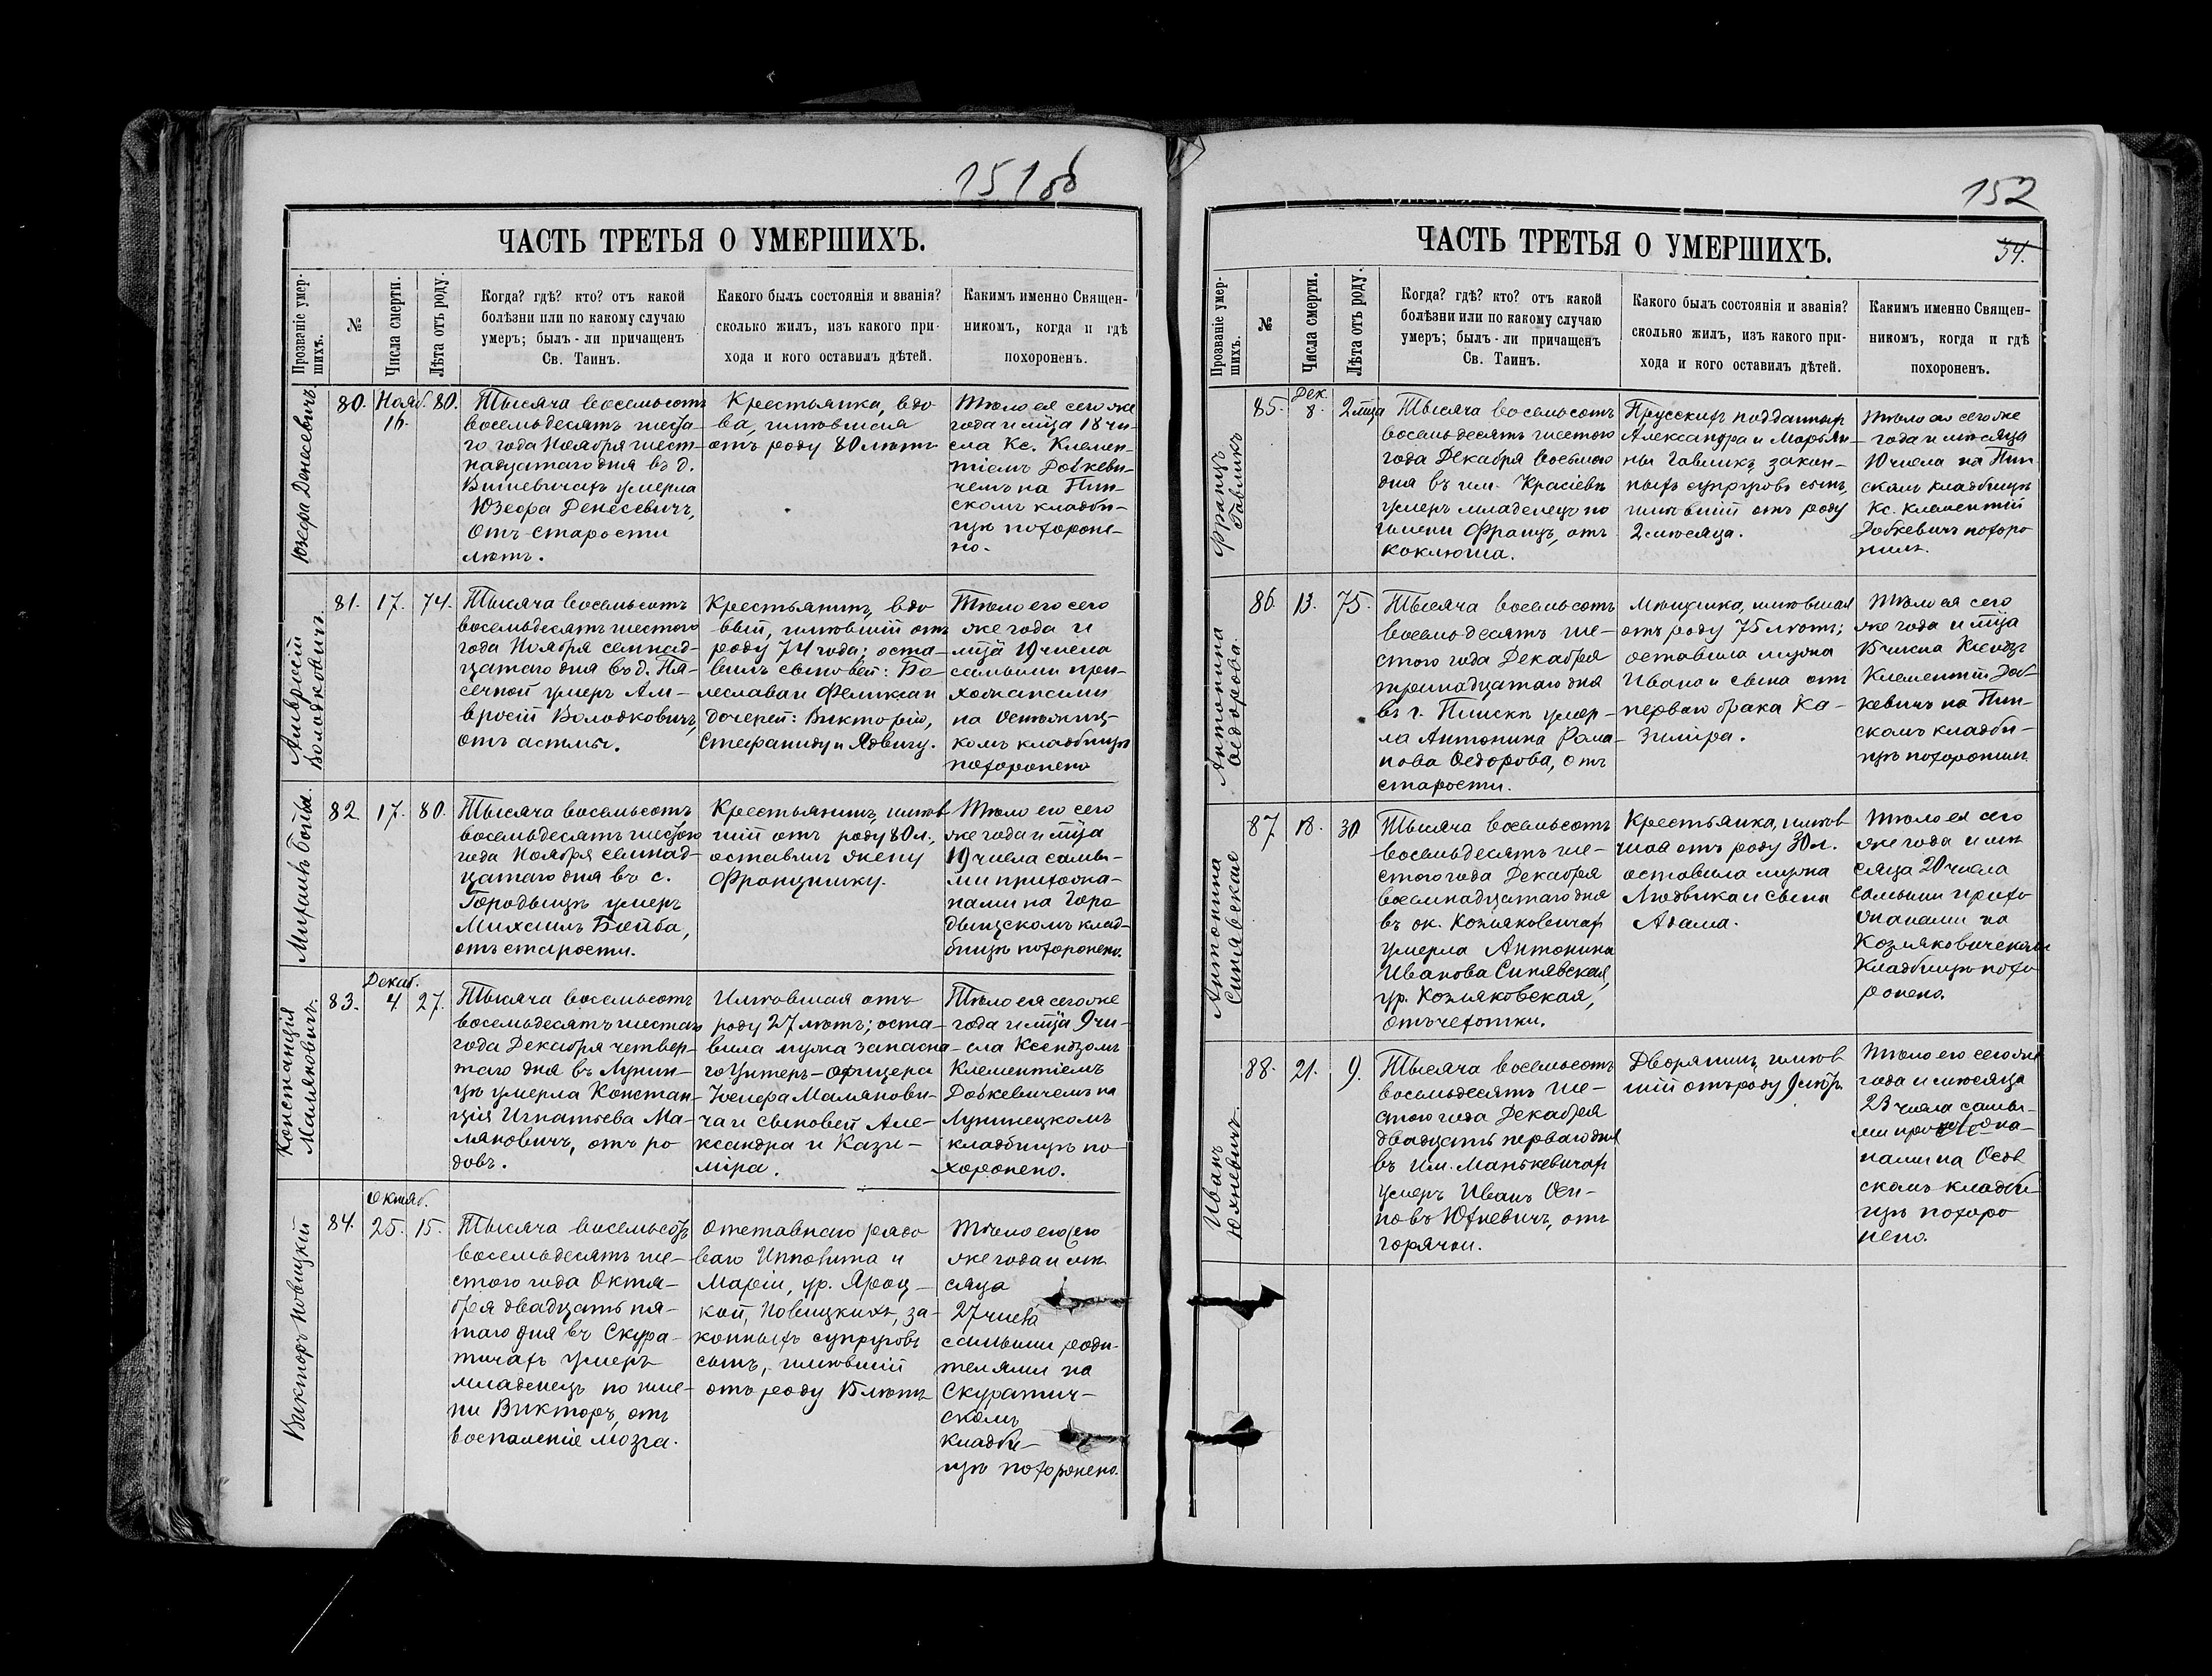 151 об
ЧАСТЬ ТРЕТЬЯ О УМЕРШИХЪ.
Прозваніе умер-
шихъ.
№
Числа смерти.
Лѣта отъ роду.
Когда? гдѣ? кто? отъ какой
болѣзни или по какому случаю
умеръ; былъ-ли причащенъ
Св. Таинъ.
Какого былъ состоянія и званія?
сколько жилъ, изъ какого при-
хода и кого оставилъ дѣтей.
Какимъ именно Священ-
никомъ, когда и гдѣ
похороненъ.
Юзефа Денесевичъ
80.
Нояб.
16.
80.
Тысяча восемьсотъ
восемьдесятъ шеста-
го года Ноября шест-
надцатаго дня въ д.
Вишевичахъ умерла
Юзефа Денесевичъ,
отъ старости
лѣтъ.
Крестьянка, вдо
ва, имѣвшая
отъ роду 80 лѣтъ
Тѣло ея сего же
года и мца 18 чи-
сла Кс. Клемен-
тіемъ Добкеви-
чемъ на Пин-
скомъ кладби-
щѣ похороне-
но.
Амвросій
Володковичъ.
81.
17.
74.
Тысяча восемьсотъ
восемьдесятъ шестого
года Ноября семнад-
цатаго дня въ д. Па-
сечной умеръ Ам-
вросій Володковичъ,
отъ астмы.
Крестьянинъ, вдо
вый, имѣвшій отъ
роду 74 года; оста-
вилъ сыновей: Бо-
леслава и Феликса и
дочерей: Викторію,
Стефаниду и Ядвигу.
Тѣло его сего
же года и
мца 19 числа
самыми при-
хожанами
на
кладбищѣ
похоронено
Михаилъ Бойба.
82.
17.
80.
Тысяча восемьсотъ
восемьдесятъ шестого
года Ноября семнад-
цатаго дня въ с.
Городыщѣ умеръ
Михаилъ Бойба,
отъ старости.
Крестьянинъ, имѣв
шій отъ роду 80 л.,
оставилъ жену
Францишку.
Тѣло его сего
же года и мца
19 числа самы-
ми прихожа-
нами на Горо
дыщскомъ клад-
бищѣ похоронено.
Констанція
Маляновичъ.
83.
Декаб.
4
27.
Тысяча восемьсотъ
восемьдесятъ шестаго
года Декабря четвер-
таго дня въ Лунин-
цѣ умерла Констан
ція Игнатьева Ма-
ляновичъ, отъ ро
довъ.
Имѣвшая отъ
роду 27 лѣтъ; оста-
вила мужа запасна-
го Унтеръ-офицера
Іосифа Маляпови-
ча и сыновей Але-
ксандра и Кази-
міра.
Тѣло ея сего же
года и мца 9 чи-
сла Ксендзомъ
Клементіемъ
Добкевичемъ на
Лунинецкомъ
кладбищѣ по-
хоронено.
Викторъ Новицкій
84.
Октяб.
25.
15.
Тысяча восемьсотъ
восемьдесятъ ше-
стого года Октя-
бря двадцать пя-
таго дня въ Скура-
тичахъ умеръ
младенецъ по име-
ни Викторъ, отъ
воспаленія мозга.
Отставного рядо
ваго Ипполита и
Маріи, ур. Яроц-
кой, Новицкихъ, за-
конныхъ супруговъ
сынъ, имѣвшій
отъ роду 15 лѣтъ
Тѣло его сего
же года и мѣ
сяца
27 числа
самыми роди-
телями на
Скуратич-
скомъ
кладби-
щѣ похоронено.
152
34.
ЧАСТЬ ТРЕТЬЯ О УМЕРШИХЪ.
Прозваніе умер-
шихъ.
№
Числа смерти.
Лѣта отъ роду.
Когда? гдѣ? кто? отъ какой
болѣзни или по какому случаю
умеръ; былъ-ли причащенъ
Св. Таинъ.
Какого былъ состоянія и званія?
сколько жилъ, изъ какого при-
хода и кого оставилъ дѣтей.
Какимъ именно Священ-
никомъ, когда и гдѣ
похороненъ.
Францъ
Гавликъ
85.
Дек.
8.
2 мца
Тысяча восемьсотъ
восемьдесятъ шестого
года Декабря восьмого
дня въ им. Красіевѣ
умеръ младенецъ по
имени Францъ, отъ
коклюша.
Прусскихъ подданныхъ
Александра и Марьян-
ны Гавликъ, закон-
ныхъ супруговъ сынъ,
имѣвшій отъ роду
2 мѣсяца.
Тѣло его сего же
года и мѣсяца
10 числа на Пин
скомъ кладбищѣ
Кс. Клементій
Добкевичъ похоро
нилъ.
Антонина
Ѳедорова.
86.
13.
75.
Тысяча восемьсотъ
восемьдесятъ ше-
стого года Декабря
тринадцатаго дня
въ г. Пинскѣ умер-
ла Антонина Рома-
нова Ѳедорова, отъ
старости.
Мѣщанка, имѣвшая
отъ роду 75 лѣтъ;
оставила мужа
Ивана и сына отъ
перваго брака Ка-
зиміра.
Тѣло ея сего
же года и мца
15 числа Ксендзъ
Клементій Доб-
кевичъ на Пин-
скомъ кладби-
щѣ похоронилъ
Антонина
Синявская
87.
18.
30
Тысяча восемьсотъ
восемьдесятъ ше-
стого года Декабря
восемнадцатаго дня
въ ок. Козляковичахъ
умерла Антонина
Иванова Синявская,
ур. Козляковская,
отъ чахотки.
Крестьянка, имѣв
шая отъ роду 30 л.
оставила мужа
Людвика и сына
Адама.
Тѣло ея сего
же года и мѣ
сяца 20 числа
самыми прихо
жанами на
Козляковичскомъ
кладбищѣ похо
ронено.
Иванъ
Юхневичъ.
88.
21.
9.
Тысяча восемьсотъ
восемьдесятъ ше-
стого года Декабря
двадцать перваго дня
въ им. Манькевичахъ
умеръ Иванъ Оси-
повъ Юхневичъ, отъ
горячки.
Дворянинъ, имѣв
шій отъ роду 9 лѣтъ.
Тѣло его сего же
года и мѣсяца
23 числа самы-
ми прихожа-
нами на
скомъ кладби-
щѣ похоро
нено.